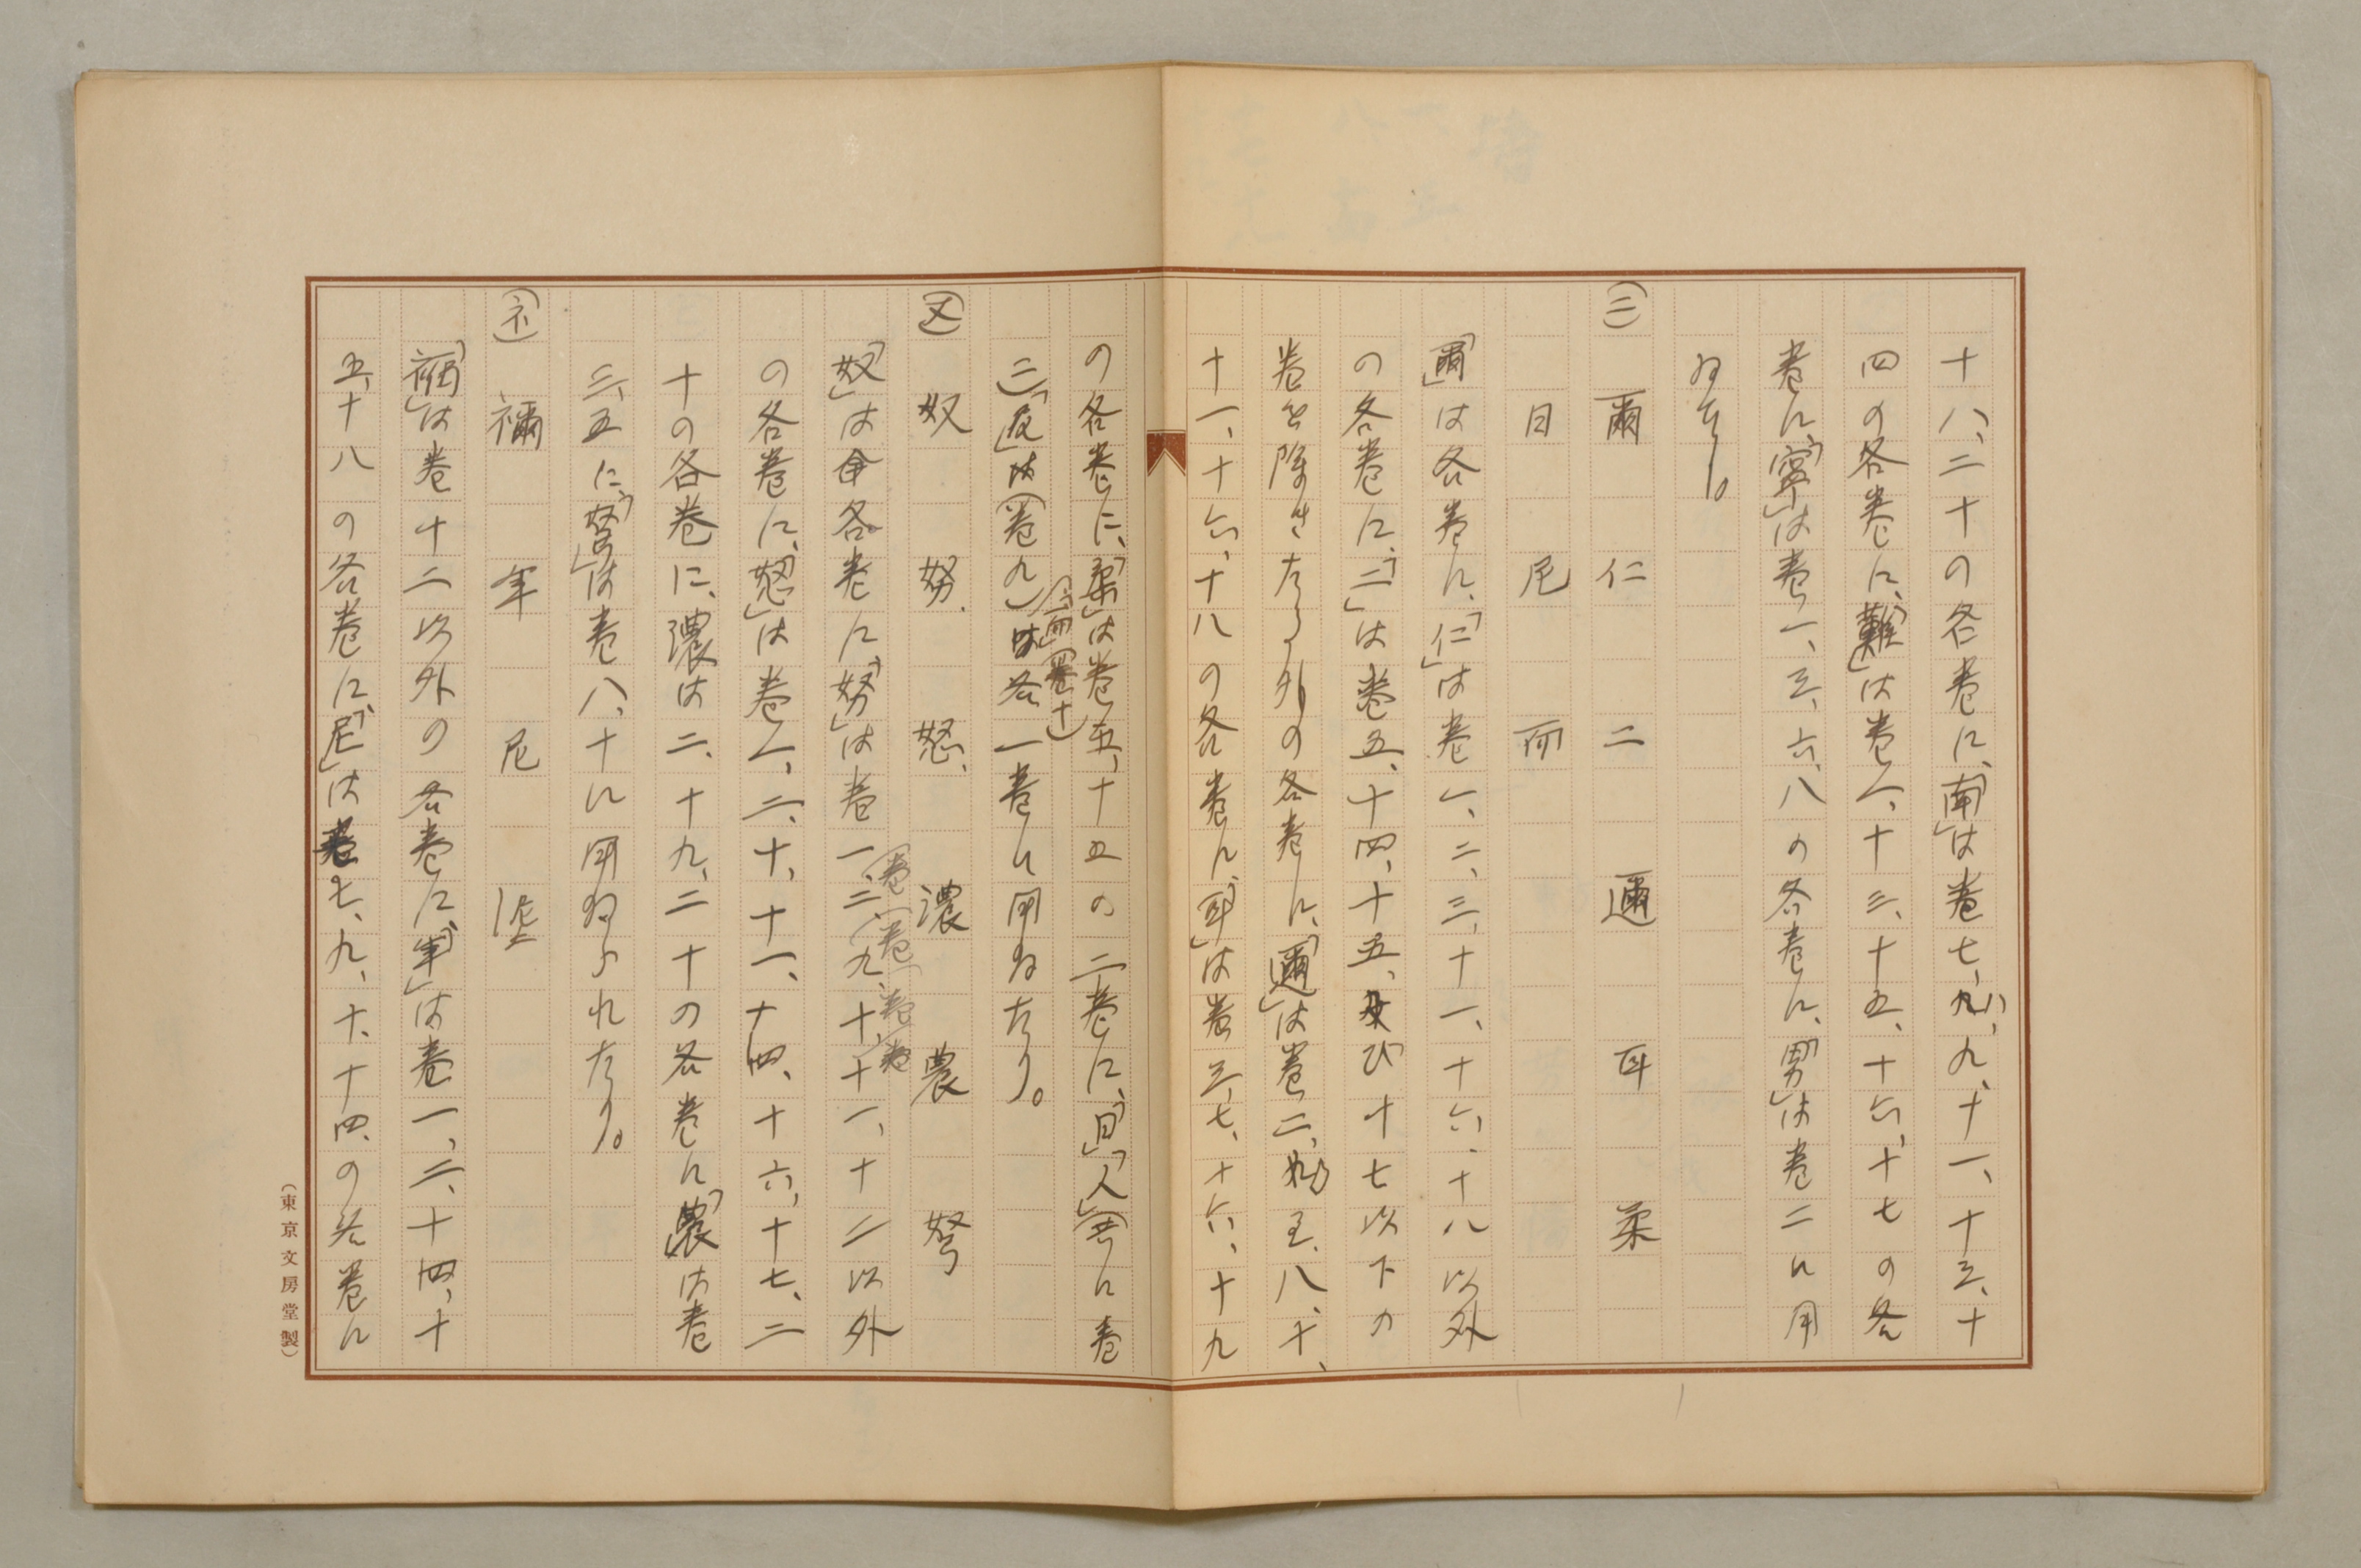 十八、二十の各巻に、「南」は巻七、九、十一、十三、十
四の各巻に、「難」は巻一、十三、十五、十六、十七の各
巻に、「寧」は巻一、三、六、八の各巻に、「男」は巻二に用
ゐたり。
(ニ) 爾 仁 二 邇 耳 柔
日 尼 而
「爾」は各巻に、「仁」は巻一、二、三、十一、十六、十八以外
の各巻に、「二」は巻五、十四、十五、及び十七以下の
巻を除きたる外の各巻に、「邇」は巻二、五、八、十、
十一、十六、十八の各巻に、「耳」は巻三、七、十六、十九
の各巻に、「柔」は巻五、十五の二巻に、「日」「人」(共に巻
三)「而」(巻十)は(巻九)は各一巻に用ゐたり。
(ヌ) 奴 努 怒 濃 農 弩
「奴」は各巻に、「努」は巻一、二、九、十、十一、十二以外
の各巻に、「怒」は巻一、二、十、十一、十四、十六、十七、二
十の各巻に、濃は二、十九、二十の各巻に「農」は巻
三、五に、「弩」は巻八、十に用ゐられたり。
(ネ) 禰 年 尼 泥
「禰」は巻十二以外の各巻に、「年」は巻一、二、十四、十
五、十八の各巻に、「尼」は巻七、九、十、十四、の各巻に
(東京文房堂製)